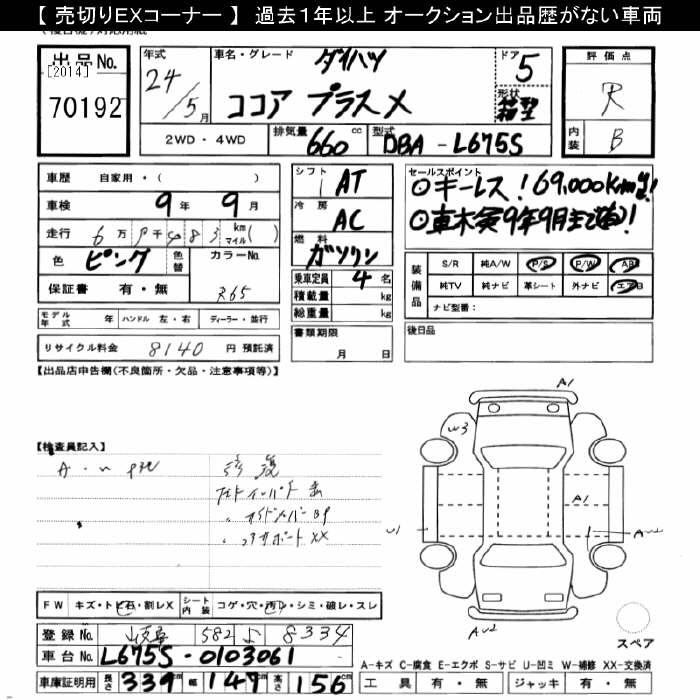 【 売切りEXコーナー 】 過去１年以上 オークション出品歴がない車両
出品No.
[2014]
70192
年式
24/5月
車名・グレード
ダイハツ
ココア プラスX
ドア
5
形状
箱型
評価点
R
内装
B
2WD・4WD
排気量
660cc
型式
DBA-L675S
車歴 自家用・( )
車検 9年 9月
走行 6万9千483 km マイル( )
色 ピンク
色替
カラーNo.
R65
保証書 有・無
シフト
AT
冷房
AC
燃料
ガソリン
乗車定員 4名
積載量 kg
総重量 kg
セールスポイント
◎キーレス！69,000Km台！
◎車検9年9月まで有！
装備品
S/R 純A/W P/S P/W ABS
純TV 純ナビ 革シート 外ナビ エアB
ナビ型番：
モデル年式 年 ハンドル 左・右 ディーラー・並行
リサイクル料金 8140 円 預託済
書類期限
月 日
後日品
【出品店申告欄(不良箇所・欠品・注意事項等)】
【検査員記入】
修復
〃 サイドメンバー
〃 コアサポート XX
A1
W3
A1
U1
AU2
FW キズ・トビ石・割レX
シート内装 コゲ・穴・汚レ・シミ・破レ・スレ
登録No. 岐阜 582 8334
車台No. L675S-0103061
車庫証明用 長さ 339 cm 幅 147 cm 高さ 156 cm
スペア
A-キズ C-腐食 E-エクボ S-サビ U-凹ミ W-補修 XX-交換済
工具 有・無 ジャッキ 有・無